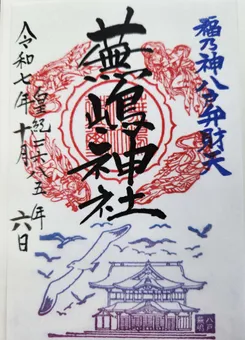 稲乃神八戸弁財天
蕪嶋神社
皇紀二六八五年
令和七年十月六日
八戸
蕪嶋